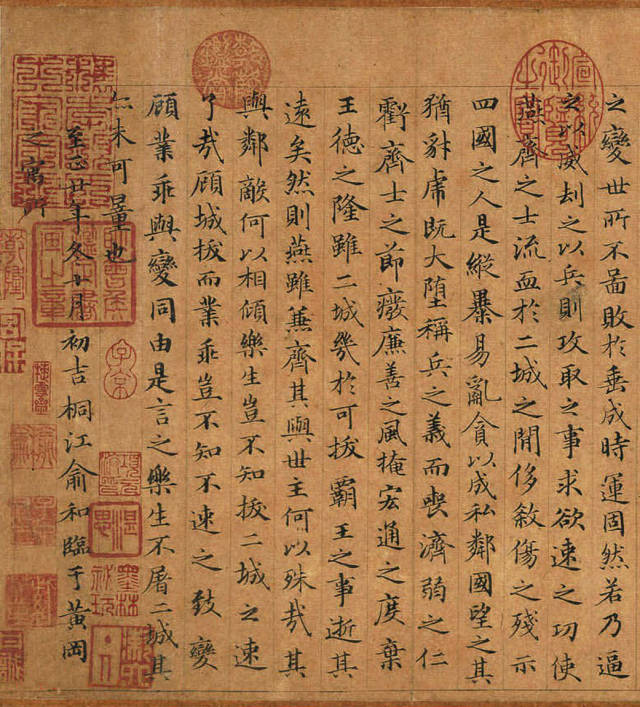 之變世所不啚敗於垂成時運固然若乃逼
之以威刧之以兵則攻取之事求欲速之功使
燕齊之士流血於二城之間侈敘傷之殘示
四國之人是縱暴易亂貪以成私鄰國望之其
猶豺虎既大墮稱兵之義而喪濟弱之仁
虧齊士之節廢廉善之風掩宏通之度棄
王德之隆雖二城幾於可拔霸王之事逝其
遠矣然則燕雖兼齊其與世主何以殊哉其
與鄰敵何以相傾樂生豈不知拔二城之速
了哉顧城拔而業乖豈不知不速之致變
顧業乖與變同由是言之樂生不屠二城其
亦未可量也
至正廿年冬十月初吉桐江俞和臨于黃岡
之寓所